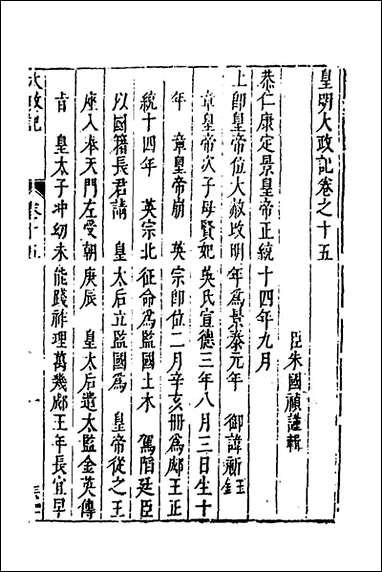 皇明大政記卷之十五
臣朱國禎謹輯
恭仁康定景皇帝正統十四年九月
上即皇帝位大赦改明年爲景泰元年 御諱祁鈺
章皇帝次子母賢妃吳氏宣德三年八月三日生十
年 章皇帝崩 英宗即位二月辛亥册爲郕王正
統十四年 英宗北征命爲監國土木 駕陷廷臣
以國籍長君請 皇太后立監國爲 皇帝從之王
座入奉天門左受朝庚辰 皇太后遣太監金英傳
旨 皇太子冲幼未能踐祚理萬幾郕王年長宜早
大政記
卷十五
一